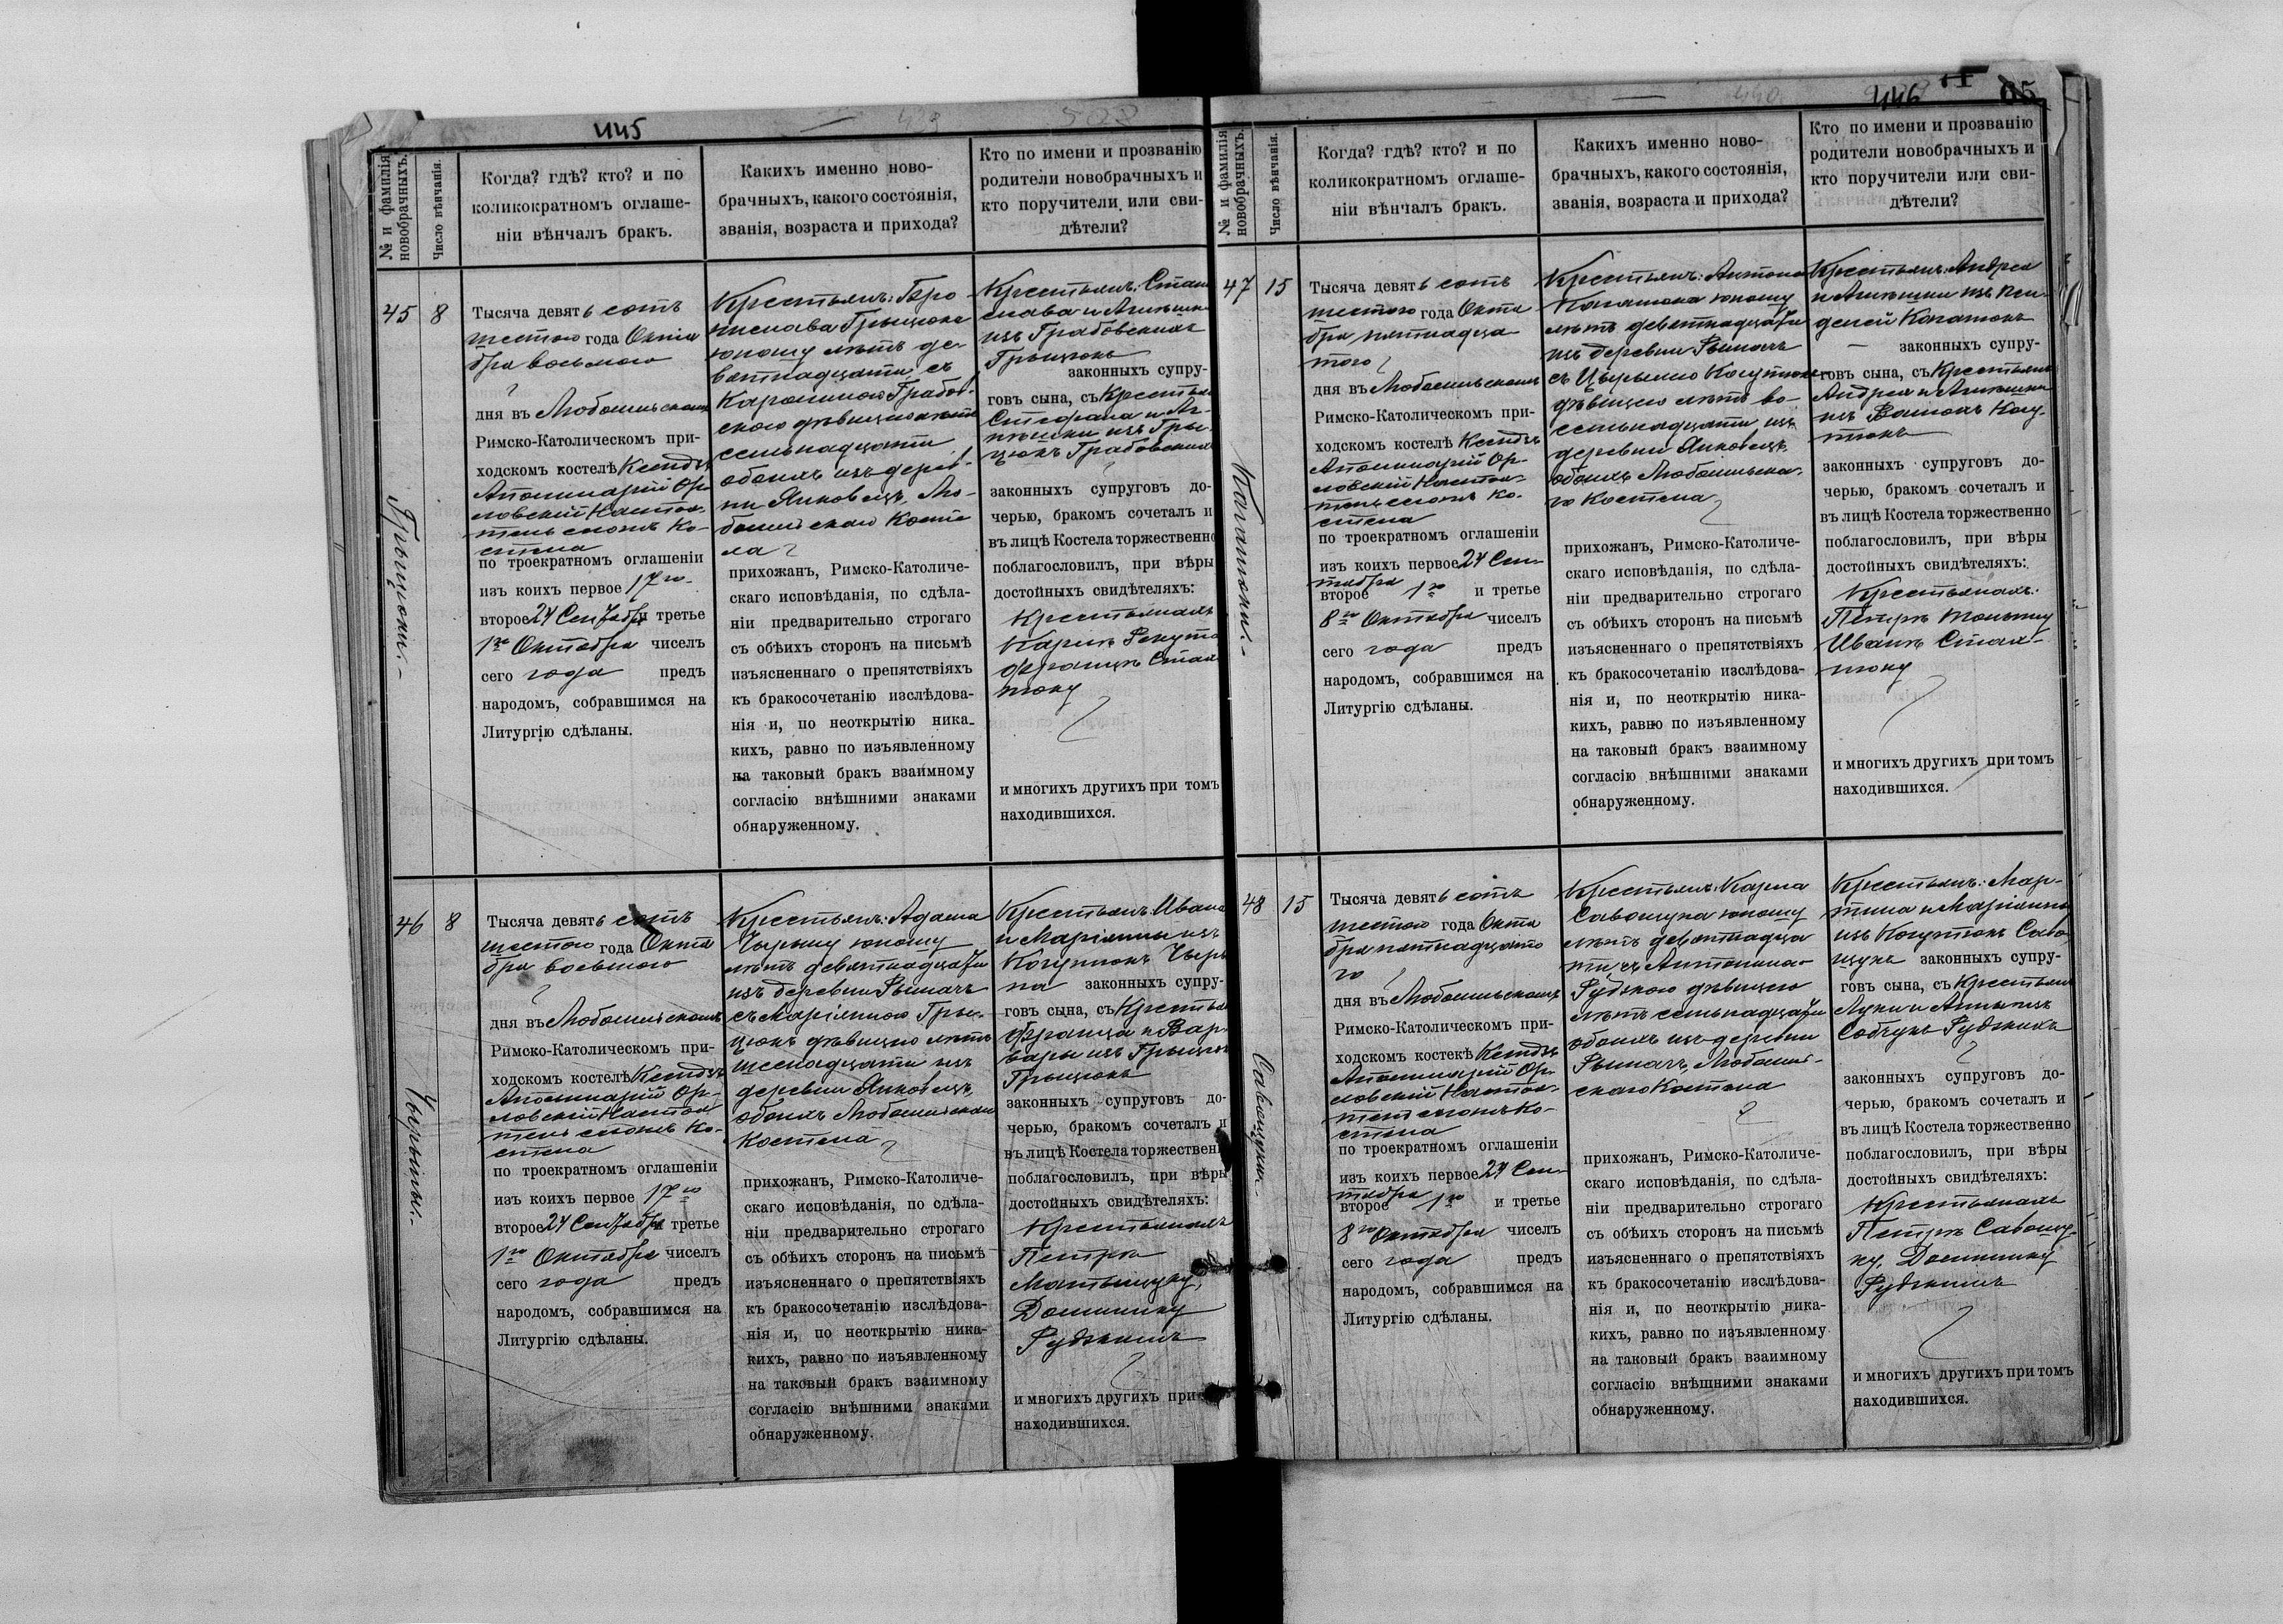 445
№ и фамилія
новобрачныхъ.
Число вѣнчанія.
Когда? гдѣ? кто? и по
коликократномъ оглаше-
ніи вѣнчалъ бракъ.
Какихъ именно ново-
брачныхъ, какого состоянія,
званія, возраста и прихода?
Кто по имени и прозванію
родители новобрачныхъ и
кто поручители или сви-
дѣтели?
45
8
Грыцюки.-
Тысяча девять сотъ
шестого года Октя
бря восьмого
дня въ Любашьскомъ
Римско-Католическомъ при-
ходскомъ костелѣ Ксендзъ
Аполинарій Ор-
ловскій Настоя-
тель сломъ Ко-
стела
по троекратномъ оглашеніи
изъ коихъ первое 17го
второе 24 Сентября третье
1го Октября чиселъ
сего года предъ
народомъ, собравшимся на
Литургію сдѣланы.
Крестьянъ: Бро-
нислава Грыцюка
юношу лѣтъ де-
вятнадцати съ
Каролиною Грабов-
скою дѣвицею лѣтъ
семьнадцати
обоихъ изъ дерев-
ни Янковецъ, Лю-
башьскаго Косте
ла
прихожанъ, Римско-Католиче-
скаго исповѣданія, по сдѣла-
ніи предварительно строгаго
съ обѣихъ сторонъ на письмѣ
изъясненнаго о препятствіяхъ
къ бракосочетанію изслѣдова-
нія и, по неоткрытію ника-
кихъ, равно по изъявленному
на таковый бракъ взаимному
согласію внѣшними знаками
обнаруженному.
Крестьянъ: Стани
слава и Агнешки
изъ Грабовскихъ
Грыцюкъ
законныхъ супру-
говъ сына, съ Крестьян
Стефана и Аг-
нешки изъ Гры-
цюкъ Грабовскихъ
законныхъ супруговъ до-
черью, бракомъ сочеталъ и
въ лицѣ Костела торжественно
поблагословилъ, при вѣры
достойныхъ свидѣтеляхъ:
Крестьянахъ
Карлѣ
Францъ
и многихъ другихъ при томъ
находившихся.
46
8
Чырыны.-
Тысяча девять сотъ
шестого года Октя
бря восьмого
дня въ Любашьскомъ
Римско-Католическомъ при-
ходскомъ костелѣ Ксендзъ
Аполинарій Ор-
ловскій Настоя-
тель сломъ Ко-
стела
по троекратномъ оглашеніи
изъ коихъ первое 17го
второе 24 Сентября третье
1го Октября чиселъ
сего года предъ
народомъ, собравшимся на
Литургію сдѣланы.
Крестьянъ: Адама
Чырыну юношу
лѣтъ девятнадцати
изъ деревни Рымачъ
съ Маріанною Гры-
цюкъ дѣвицею лѣтъ
шеснадцати изъ
деревни Янковецъ,
обоихъ Любашьскаго
Костела
прихожанъ, Римско-Католиче-
скаго исповѣданія, по сдѣла-
ніи предварительно строгаго
съ обѣихъ сторонъ на письмѣ
изъясненнаго о препятствіяхъ
къ бракосочетанію изслѣдова-
нія и, по неоткрытію ника-
кихъ, равно по изъявленному
на таковый бракъ взаимному
согласію внѣшними знаками
обнаруженному.
Крестьянъ: Ивана
и Маріанны изъ
Когутюкъ Чыры
на законныхъ супру-
говъ сына, съ Крестьян
Франца и Вар-
вары изъ Грыцюкъ
Грыцюкъ
законныхъ супруговъ до-
черью, бракомъ сочеталъ и
въ лицѣ Костела торжествен
поблагословилъ, при вѣры
достойныхъ свидѣтеляхъ:
Крестьянахъ
Петрѣ
Матыщуку,
Доминику
Рудзкимъ
и многихъ другихъ при
находившихся.
446
65
№ и фамилія
новобрачныхъ.
Число вѣнчанія.
Когда? гдѣ? кто? и по
коликократномъ оглаше-
ніи вѣнчалъ бракъ.
Какихъ именно ново-
брачныхъ, какого состоянія,
званія, возраста и прихода?
Кто по имени и прозванію
родители новобрачныхъ и
кто поручители или сви-
дѣтели?
47
15
Тысяча девять сотъ
шестого года Октя
бря пятнадца
того
дня въ Любашьскомъ
Римско-Католическомъ при-
ходскомъ костелѣ Ксендзъ
Аполинарій Ор-
ловскій Настоя-
тель сломъ Ко-
стела
по троекратномъ оглашеніи
изъ коихъ первое 24 Сен-
тября
второе 1го и третье
8го Октября чиселъ
сего года предъ
народомъ, собравшимся на
Литургію сдѣланы.
Крестьянъ: Антона
юношу
лѣтъ девятнадцати
изъ деревни Рымачъ
съ Когутюк
дѣвицею лѣтъ во-
семьнадцати изъ
деревни Янковецъ,
обоихъ Любашьска-
го Костела
прихожанъ, Римско-Католиче-
скаго исповѣданія, по сдѣла-
ніи предварительно строгаго
съ обѣихъ сторонъ на письмѣ
изъясненнаго о препятствіяхъ
къ бракосочетанію изслѣдова-
нія и, по неоткрытію ника-
кихъ, равно по изъявленному
на таковый бракъ взаимному
согласію внѣшними знаками
обнаруженному.
Крестьянъ: Андрея
и Агнешки изъ
законныхъ супру-
говъ сына, съ Крестьянъ
Андрея и Агнешки
изъ Когу-
тюкъ
законныхъ супруговъ до-
черью, бракомъ сочеталъ и
въ лицѣ Костела торжественно
поблагословилъ, при вѣры
достойныхъ свидѣтеляхъ:
Крестьянахъ:
Петрѣ
Иванъ
и многихъ другихъ при томъ
находившихся.
48
15
Савощуки.-
Тысяча девять сотъ
шестого года Октя
бря пятнадцато
го
дня въ Любашьскомъ
Римско-Католическомъ при-
ходскомъ костекѣ Ксендзъ
Аполинарій Ор-
ловскій Настоя-
тель сломъ Ко-
стела
по троекратномъ оглашеніи
изъ коихъ первое 24 Сен-
тября
второе 1го и третье
8го Октября чиселъ
сего года предъ
народомъ, собравшимся на
Литургію сдѣланы.
Крестьянъ: Карла
Савощука юношу
лѣтъ девятнадца
ти съ Антонина-
Рудзкою дѣвицею
лѣтъ семьнадцати
обоихъ изъ деревни
Рымачъ, Любашь-
скаго Костела
прихожанъ, Римско-Католиче-
скаго исповѣданія, по сдѣла-
ніи предварительно строгаго
съ обѣихъ сторонъ на письмѣ
изъясненнаго о препятствіяхъ
къ бракосочетанію изслѣдова-
нія и, по неоткрытію ника-
кихъ, равно по изъявленному
на таковый бракъ взаимному
согласію внѣшними знаками
обнаруженному.
Крестьянъ: Мар-
тина и Маріанны
изъ Когутюкъ Саво-
щукъ законныхъ супру-
говъ сына, съ Крестьян
Луки и Анны изъ
Собчукъ Рудзкихъ
законныхъ супруговъ до-
черью, бракомъ сочеталъ и
въ лицѣ Костела торжественно
поблагословилъ, при вѣры
достойныхъ свидѣтеляхъ:
Крестьянахъ
Петрѣ Савощу-
ку, Доминику
Рудзкимъ
и многихъ другихъ при томъ
находившихся.